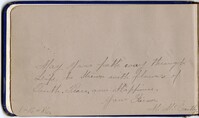 May your path way through
Life, be strewn with flowers of
Faith, Peace, and Happiness.
Your Friend